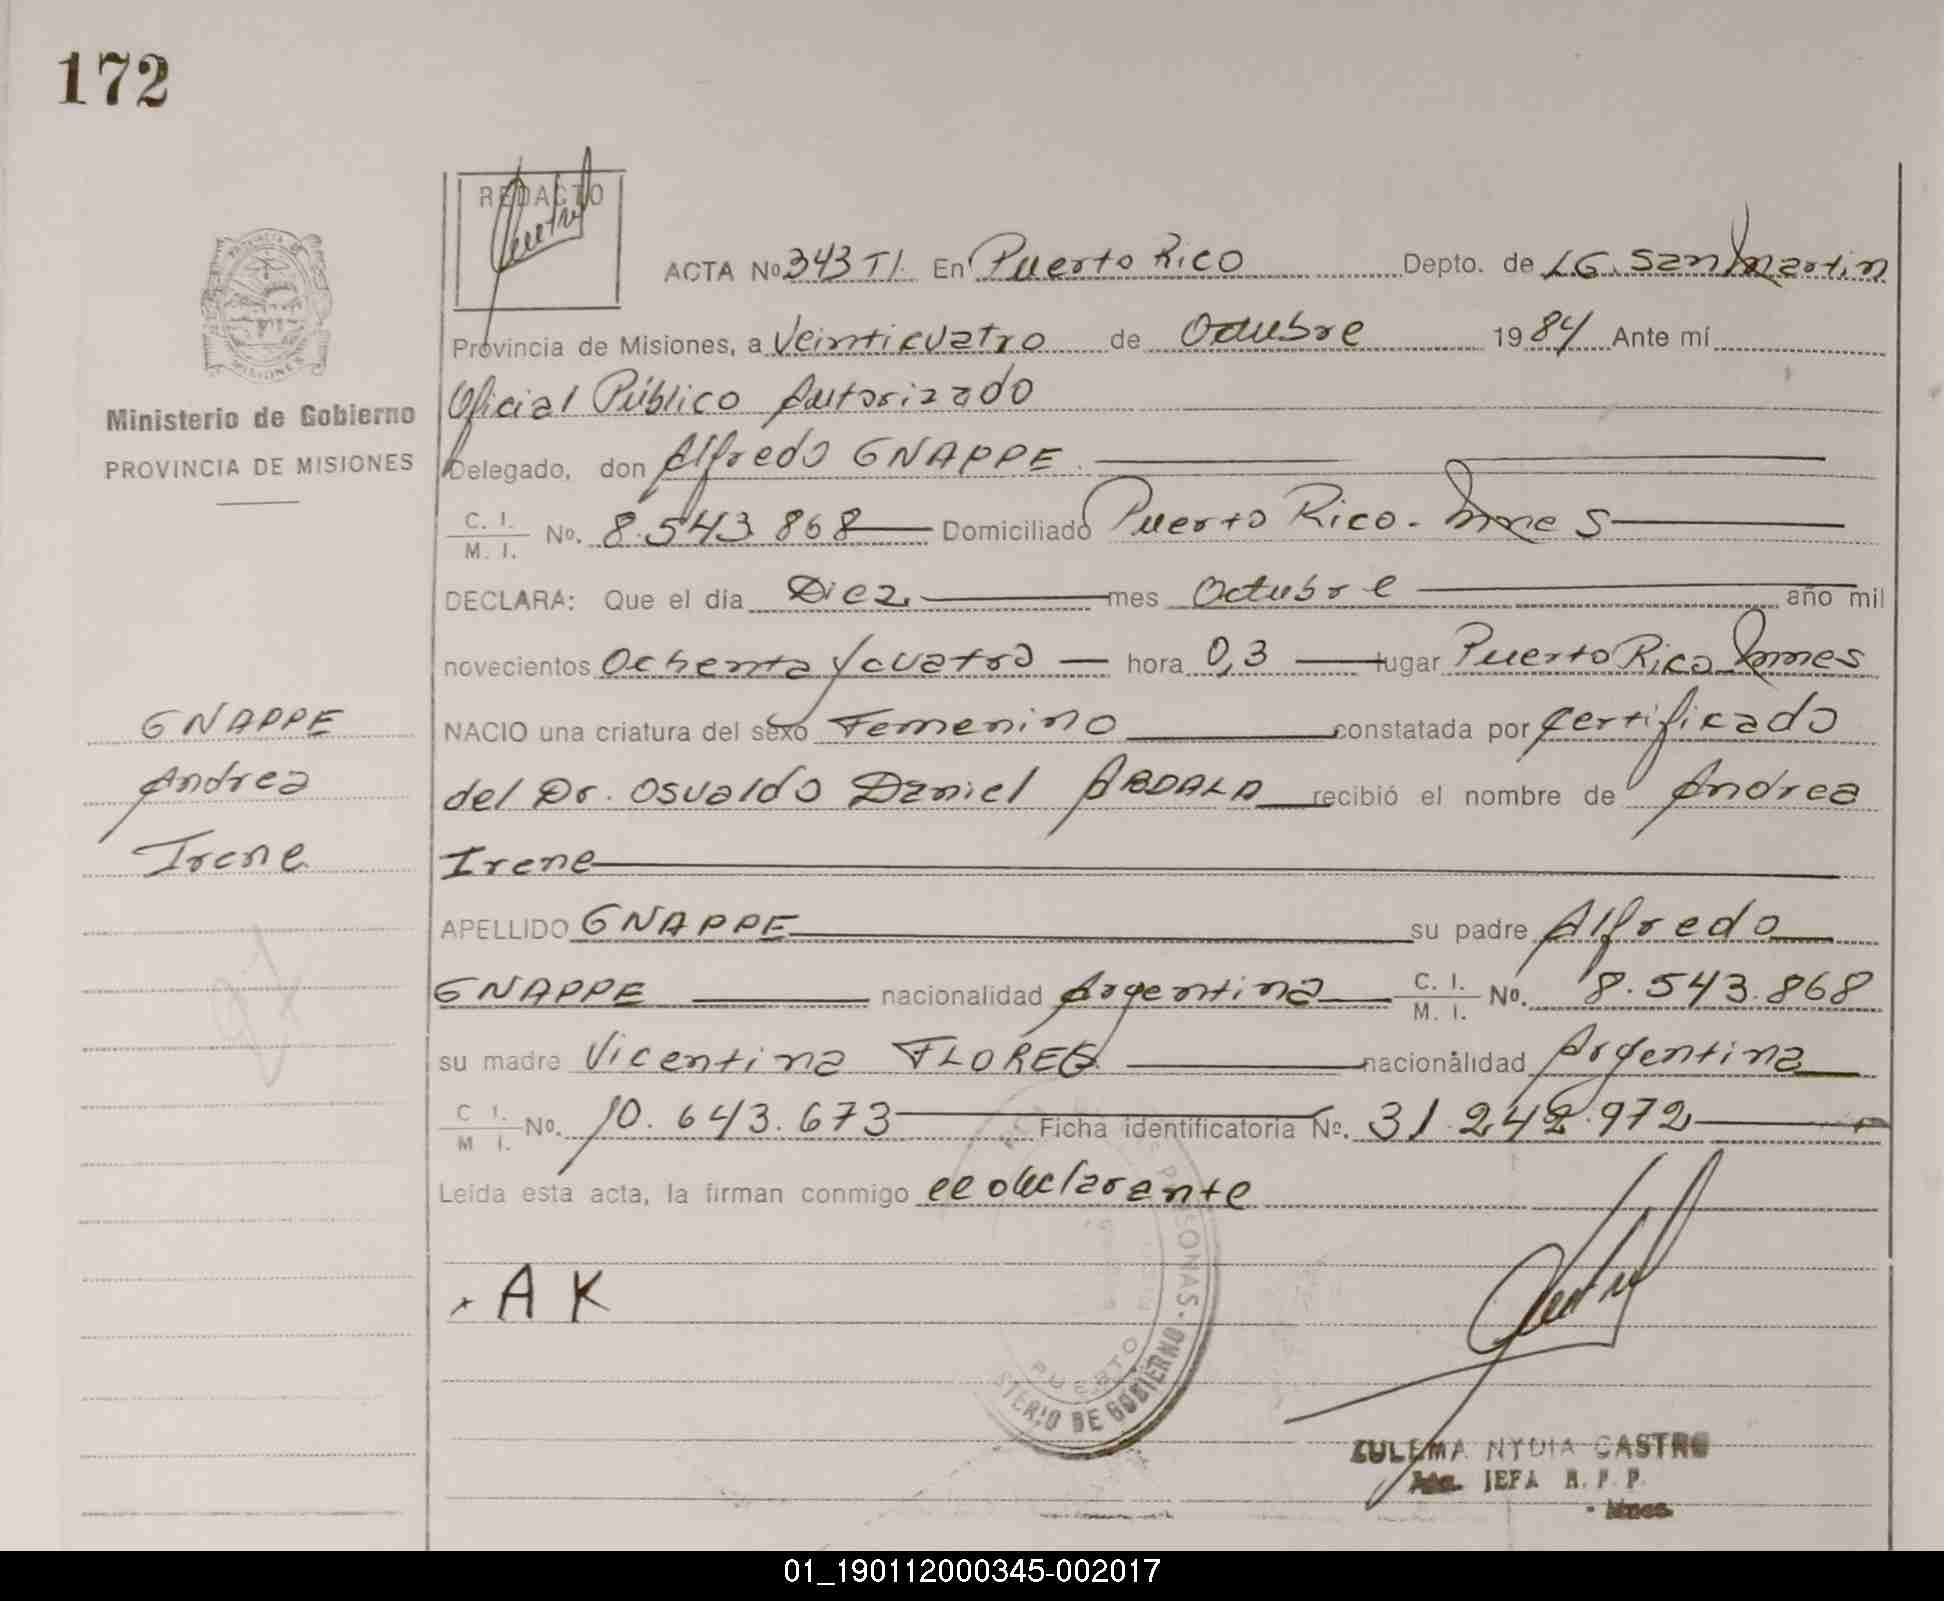 172
REDACTO
ACTA No 343 TI. En Puerto Rico Depto. de LG. San Martin
Provincia de Misiones, a Veinticuatro de Octubre 1984 Ante mí
Oficial Público Autorizado
Ministerio de Gobierno
PROVINCIA DE MISIONES
Delegado, don Alfredo GNAPPE
C. I.
M. I. No. 8.543.868 Domiciliado Puerto Rico - Mnes
DECLARA: Que el día Diez mes Octubre año mil
novecientos Ochenta y cuatro hora 0,3 lugar Puerto Rico Mnes
GNAPPE
Andrea
Irene
NACIO una criatura del sexo Femenino constatada por certificado
del Dr. Osvaldo Daniel ABDALA recibió el nombre de Andrea
Irene
APELLIDO GNAPPE su padre Alfredo
GNAPPE nacionalidad Argentina C. I. M. I. No. 8.543.868
su madre Vicentina FLORES nacionalidad Argentina
C I. M I. No. 10.643.673 Ficha identificatoria No. 31.242.972
Leída esta acta, la firman conmigo el declarante
A K
PERSONAS - MINISTERIO DE GOBIERNO
PUERTO
ZULEMA NYDIA CASTRO
JEFA R. P. P.
Mnes.
01_190112000345-002017